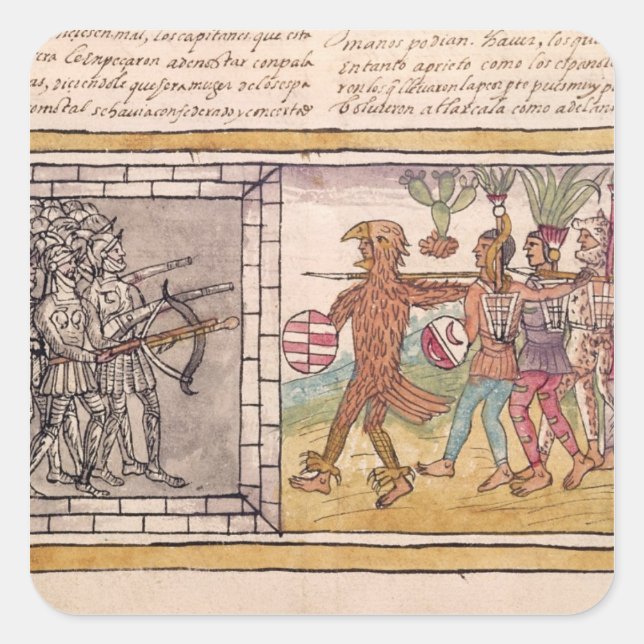 hiciesen mal, los capitanes que esta
era Le enpeçaron a denostar con pala
as, diciendole que sera muger de los espa
se havia confederado y concertado
manos podian. haver, los que
En tanto aprieto como los españole
ron los q̃ llevaron la peor pte
bolvieron a tlaxcala como adelan